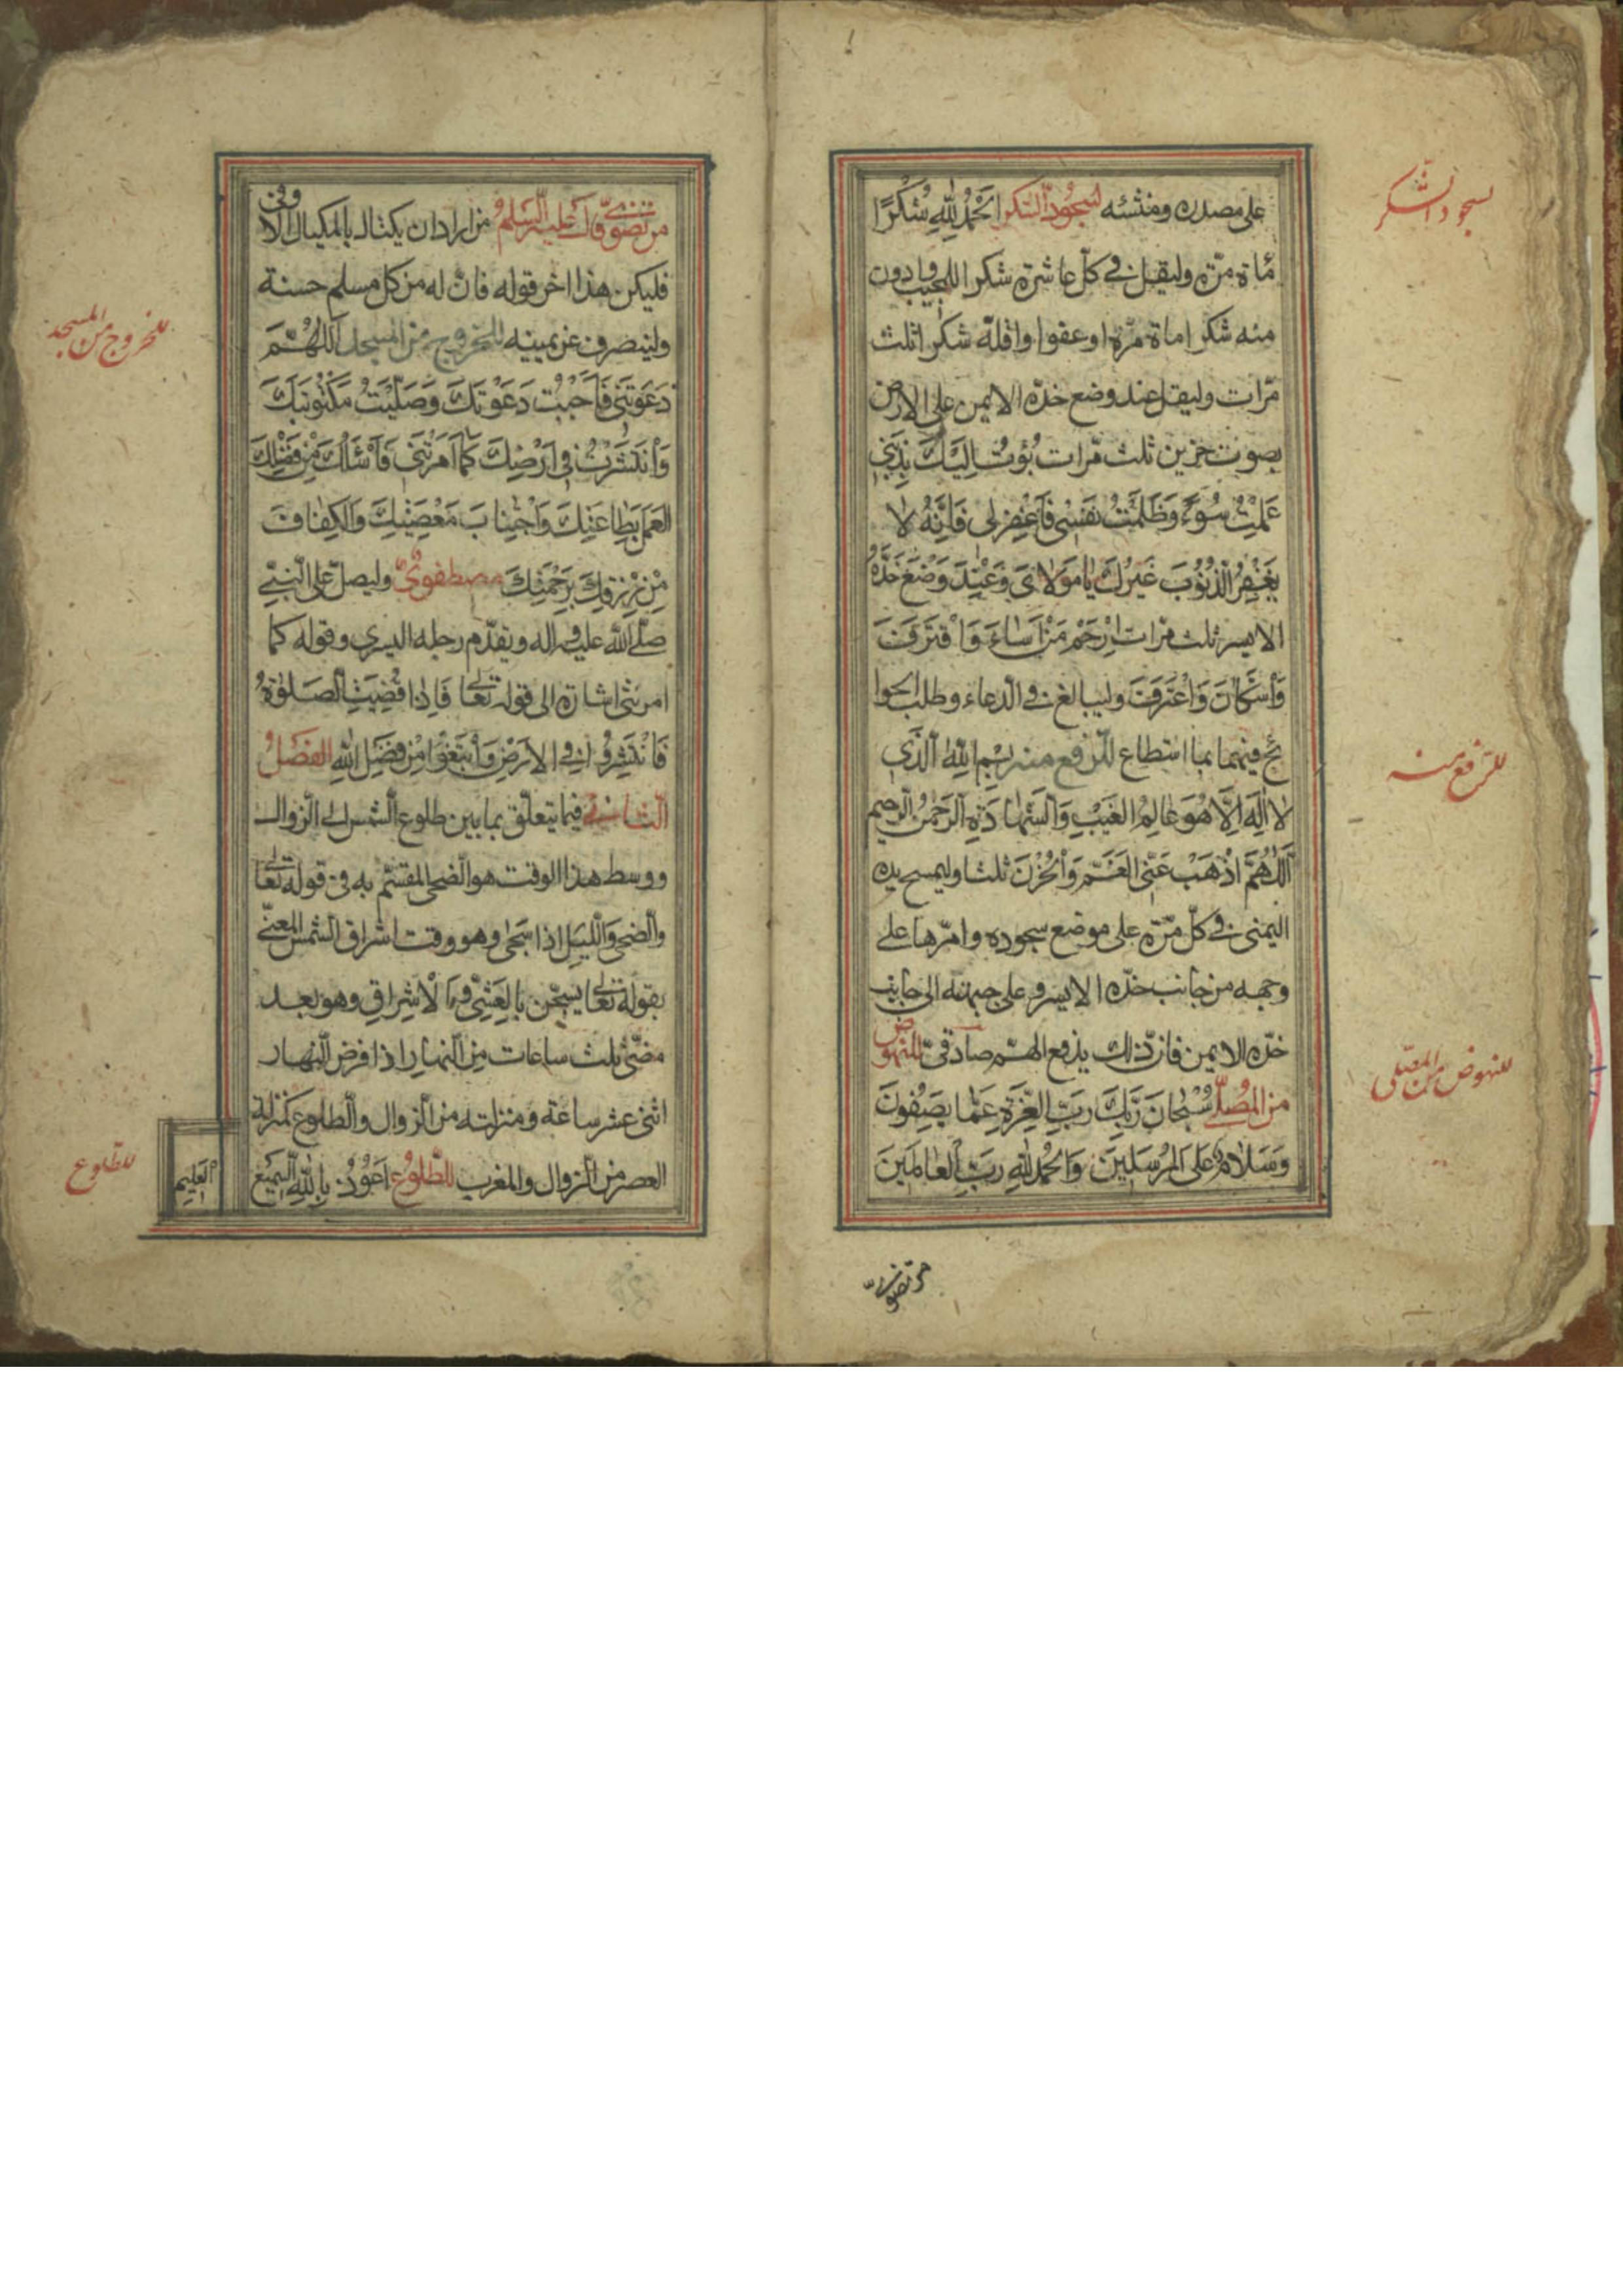 على مصدره ومنشئه لسجود الشكر اَلْحَمْدُ لِلّٰهِ شُكْرًا
مأة مرّة وليقل فى كلّ عاشرة شكرا للمجيب ودون
منه شكرا مأة مرّة او عفوا واقلّه شكرا ثلث
مرّات وليقل عند وضع خدّه الايمن على الارض
بصوت حزين ثلث مرّات بُؤْتُ اِلَيْكَ بِذَنْبِى
عَمِلْتُ سُوْءً وَظَلَمْتُ نَفْسِى فَاغْفِرْ لِى فَاِنَّهُ لا
يَغْفِرُ الذُّنُوبَ غَيْرُكَ يا مَوْلاىَ وعِنْدَ وَضْعِ خَدِّهِ
الايسر ثلث مرّات اِرْحَمْ مَنْ اَساءَ وَاقْتَرَفَ
وَاسْتَكانَ وَاعْتَرَفَ وليبالغ فى الدعاء وطلب الحوا
ئج فيهما بما استطاع للرفع منه بِسْمِ اللهِ الَّذِى
لا اِلٰهَ اِلّا هُوَ عالِمُ الغَيْبِ وَالشَّهادَةِ الرَّحْمٰنُ الرَّحِيمُ
اَللّٰهُمَّ اذْهَبْ عَنِّى الغَمَّ وَالْحُزْنَ ثلثا وليمسح يده
اليمنى فى كلّ مرّة على موضع سجوده وامرّها على
وجهه من جانب خدّه الايسر وعلى جبهته الى جانب
خدّه الايمن فانّ ذلك يدفع الهمّ صادقىّ للنهوض
من المصلّى سُبْحانَ رَبِّكَ رَبِّ العِزَّةِ عَمّا يَصِفُونَ
وَسَلامٌ عَلَى المُرْسَلِينَ وَالحَمْدُ لِلّٰهِ رَبِّ العالَمِينَ
مرتضوىّ
لسجود الشكر
للرفع منه
للنهوض من المصلّى
مرتضوىّ قال عليه السلم من اراد ان يكتال بالمكيال الاوفى
فليكن هذا اخر قوله فانّ له من كل مسلم حسنة
ولينصرف عن يمينه للخروج من المسجد اَللّٰهُمَّ
دَعَوْتَنِى فَاَجَبْتُ دَعْوَتَكَ وَصَلَّيْتُ مَكْتُوبَتَكَ
وَانْتَشَرْتُ فِى اَرْضِكَ كَما اَمَرْتَنِى فَاَسْئَلُكَ مِنْ فَضْلِكَ
العَمَلَ بِطاعَتِكَ وَاجْتِنابَ مَعْصِيَتِكَ وَالْكَفافَ
مِنْ رِزْقِكَ بِرَحْمَتِكَ مصطفوىّ وليصلّ على النبىّ
صلّى الله عليه واله ويقدّم رجله اليسرى وقوله كما
امرتنى اشارة الى قوله تعالى فَاِذا قُضِيَتِ الصَّلٰوةُ
فَانْتَشِرُوا فِى الارْضِ وَابْتَغُوا مِنْ فَضْلِ اللهِ الفصل
الثانى فيما يتعلّق بما بين طلوع الشمس الى الزوال
ووسط هذا الوقت هو الضحى المقسم به فى قوله تعالى
والضحى وَاللَّيْلِ اِذا سَجى وهو وقت اشراق الشمس المعنىّ
بقوله تعالى يسبّحن بِالعَشِىِّ وَالْاِشْراقِ وهو بعد
مضىّ ثلث ساعات مِنَ النهار اذا فرض النهار
اثنى عشر ساعة ومنزلته من الزوال والطلوع كمنزلة
العصر من الزوال والمغرب للطلوع اَعُوذُ بِاللهِ السَّمِيعِ
العَلِيمِ
للخروج من المسجد
للطلوع